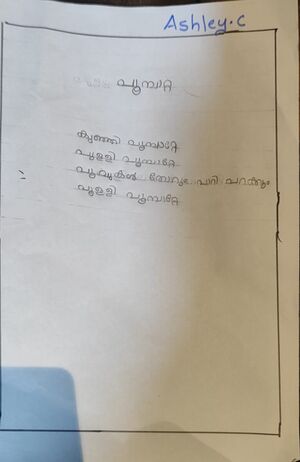 Ashley.C
പൂമ്പാറ്റ
കുഞ്ഞി പൂമ്പാറ്റേ
പുള്ളി പൂമ്പാറ്റേ
പൂവുകൾ തോറും പാറി പറക്കും
പുള്ളി പൂമ്പാറ്റേ